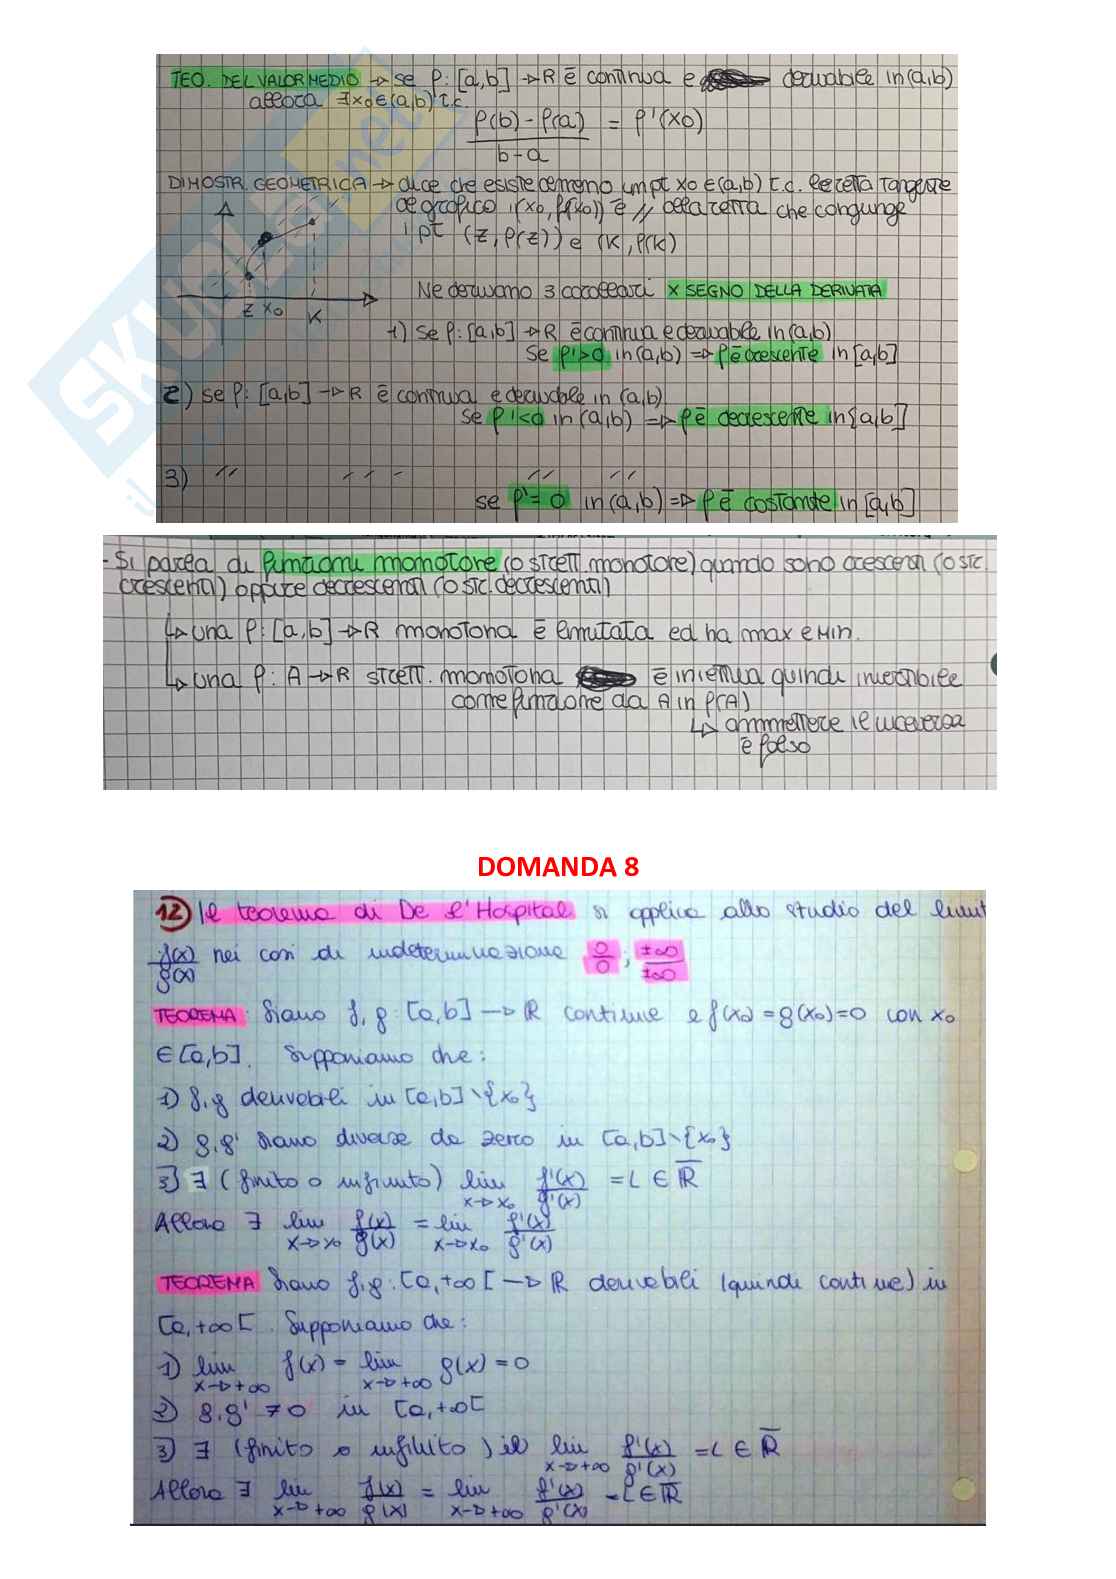 TEO. DEL VALOR MEDIO → se f: [a,b] → R è continua e derivabile in (a,b)
allora ∃ x0 ∈ (a,b) t.c.
f(b) - f(a) / b - a = f'(x0)
DIMOSTR. GEOMETRICA → dice che esiste almeno un pt x0 ∈ (a,b) t.c. la retta tangente
al grafico (x0, f(x0)) è // alla retta che congiunge
i pt (z, f(z)) e (k, f(k)
z x0 k
Ne derivano 3 corollari x SEGNO DELLA DERIVATA
1) se f: [a,b] → R è continua e derivabile in (a,b)
se f' > 0 in (a,b) ⇒ f è crescente in [a,b]
2) se f: [a,b] → R è continua e derivabile in (a,b)
se f' < 0 in (a,b) ⇒ f è decrescente in [a,b]
3) " " " "
se f' = 0 in (a,b) ⇒ f è costante in [a,b]
- Si parla di funzioni monotone (o strett. monotone) quando sono crescenti (o str.
crescenti) oppure decrescenti (o str. decrescenti)
↳ una f: [a,b] → R monotona è limitata ed ha max e min.
↳ una f: A → R strett. monotona è iniettiva quindi invertibile
come funzione da A in f(A)
↳ ammettere il viceversa
è falso
DOMANDA 8
12) Il teorema di De l'Hospital si applica allo studio del limit
f(x)/g(x) nei casi di indeterminazione 0/0 ; ±∞/±∞
TEOREMA: Siano f, g: [a,b] → R continue e f(x0) = g(x0) = 0 con x0
∈ [a,b]. Supponiamo che:
1) f, g derivabili in [a,b] \ {x0}
2) g, g' siano diverse da zero in [a,b] \ {x0}
3) ∃ (finito o infinito) lim x→x0 f'(x)/g'(x) = L ∈ R̅
Allora ∃ lim x→x0 f(x)/g(x) = lim x→x0 f'(x)/g'(x)
TEOREMA Siano f, g: [a, +∞[ → R derivabili (quindi continue) in
[a, +∞[. Supponiamo che:
1) lim x→+∞ f(x) = lim x→+∞ g(x) = 0
2) g, g' ≠ 0 in [a, +∞[
3) ∃ (finito o infinito) il lim x→+∞ f'(x)/g'(x) = L ∈ R̅
Allora ∃ lim x→+∞ f(x)/g(x) = lim x→+∞ f'(x)/g'(x) = L ∈ R̅